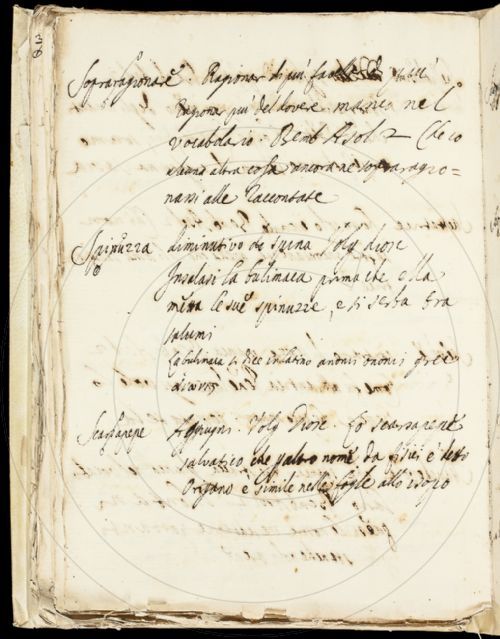 Sopraragionare. Ragionar di piu
Ragionar piu del dovere manca nel
Vocabolario. Bemb Asol 2
alcuna altra cosa ancora ne sopraragio=
nassi alle Raccontate
Spinuzza diminutivo di spina Volg diosc
Insalasi la bulimaca prima che ella
metta le sue spinuzze, e si serba tra
salumi
la bulimaca si dice in latino anonis ononis grec
Scarsapepe Aggiugni. Volg Diosc. Lo scarsapepe
salvatico che p altro nome da è detto
Origano è simile nelle foglie allo isopo